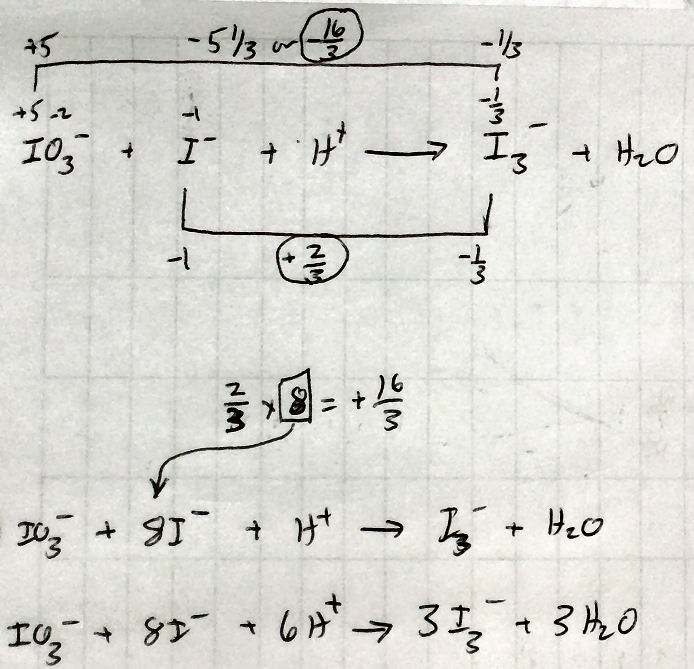 +5 -5 1/3 or -16/3 -1/3
+5 -2 -1 -1/3
IO₃⁻ + I⁻ + H⁺ → I₃⁻ + H₂O
-1 +2/3 -1/3
2/3 x 8 = +16/3
IO₃⁻ + 8I⁻ + H⁺ → I₃⁻ + H₂O
IO₃⁻ + 8I⁻ + 6H⁺ → 3I₃⁻ + 3H₂O